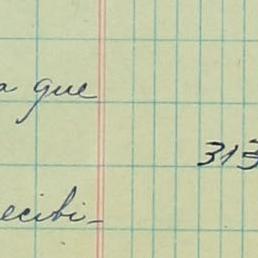 a que
313
ecibi-